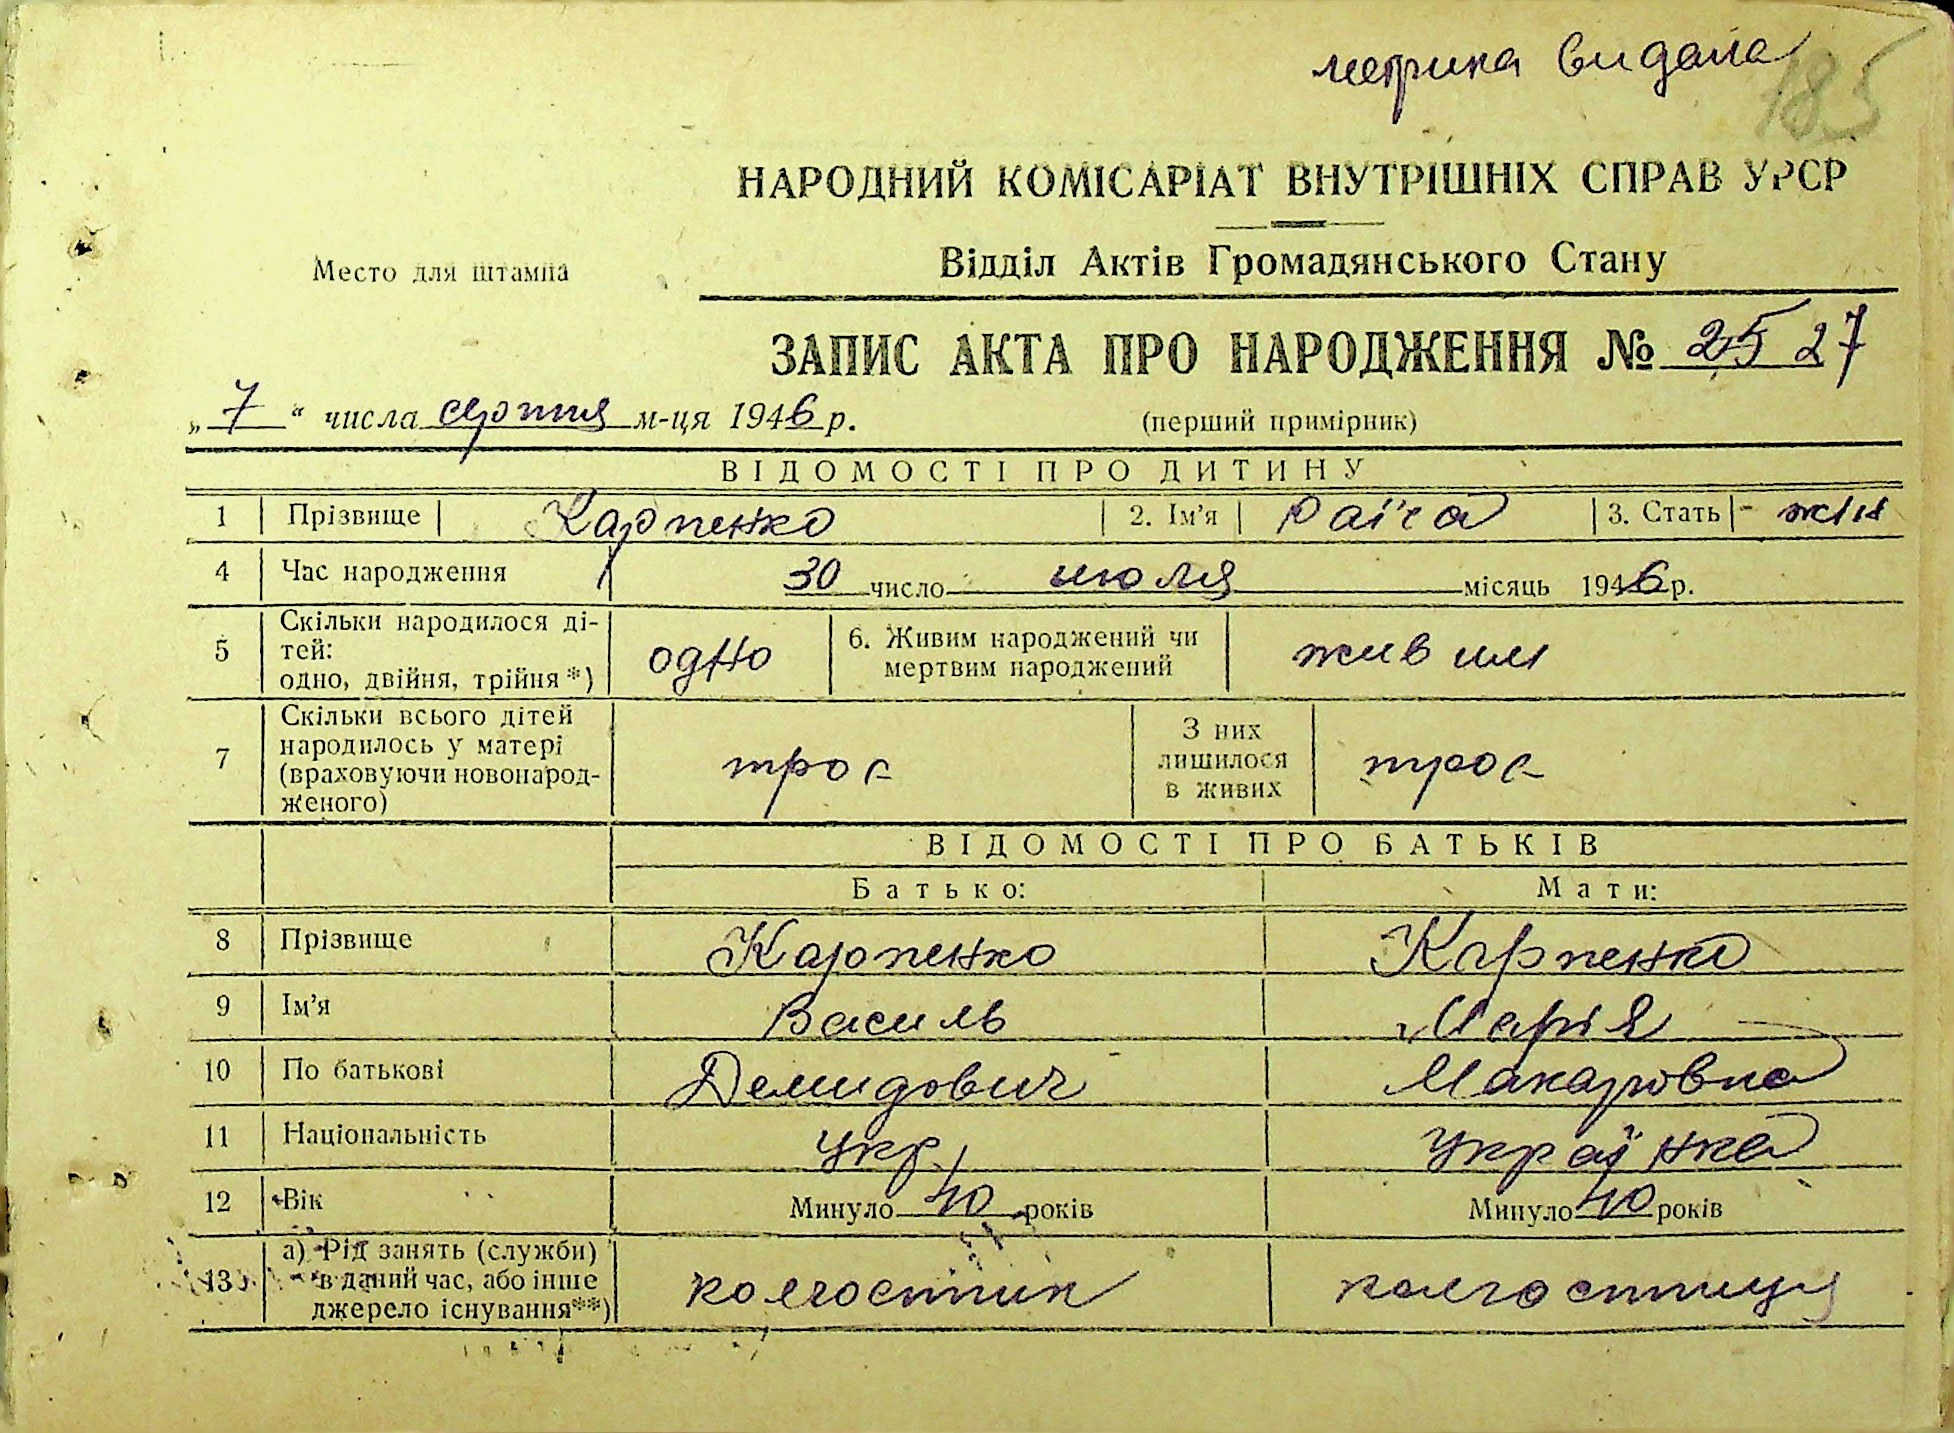 метрика видана
185
НАРОДНИЙ КОМІСАРІАТ ВНУТРІШНІХ СПРАВ УРСР
Место для штампа
Відділ Актів Громадянського Стану
ЗАПИС АКТА ПРО НАРОДЖЕННЯ № 2527
„7“ числа серпня м-ця 1946 р.
(перший примірник)
ВІДОМОСТІ ПРО ДИТИНУ
1 Прізвище Карпенко 2. Ім'я Раїса 3. Стать - жін
4 Час народження 30 число июля місяць 1946 р.
5 Скільки народилося ді-
тей:
одно, двійня, трійня*) одно 6. Живим народжений чи
мертвим народжений живим
7 Скільки всього дітей
народилось у матері
(враховуючи новонарод-
женого) троє З них
лишилося
в живих троє
ВІДОМОСТІ ПРО БАТЬКІВ
Батько: Мати:
8 Прізвище Карпенко Карпенко
9 Ім'я Василь Марія
10 По батькові Демидович Макаровна
11 Національність укр. українка
12 Вік Минуло 40 років Минуло 40 років
13 а) Рід занять (служби)
в даний час, або інше
джерело існування**) колгоспник колгоспниця